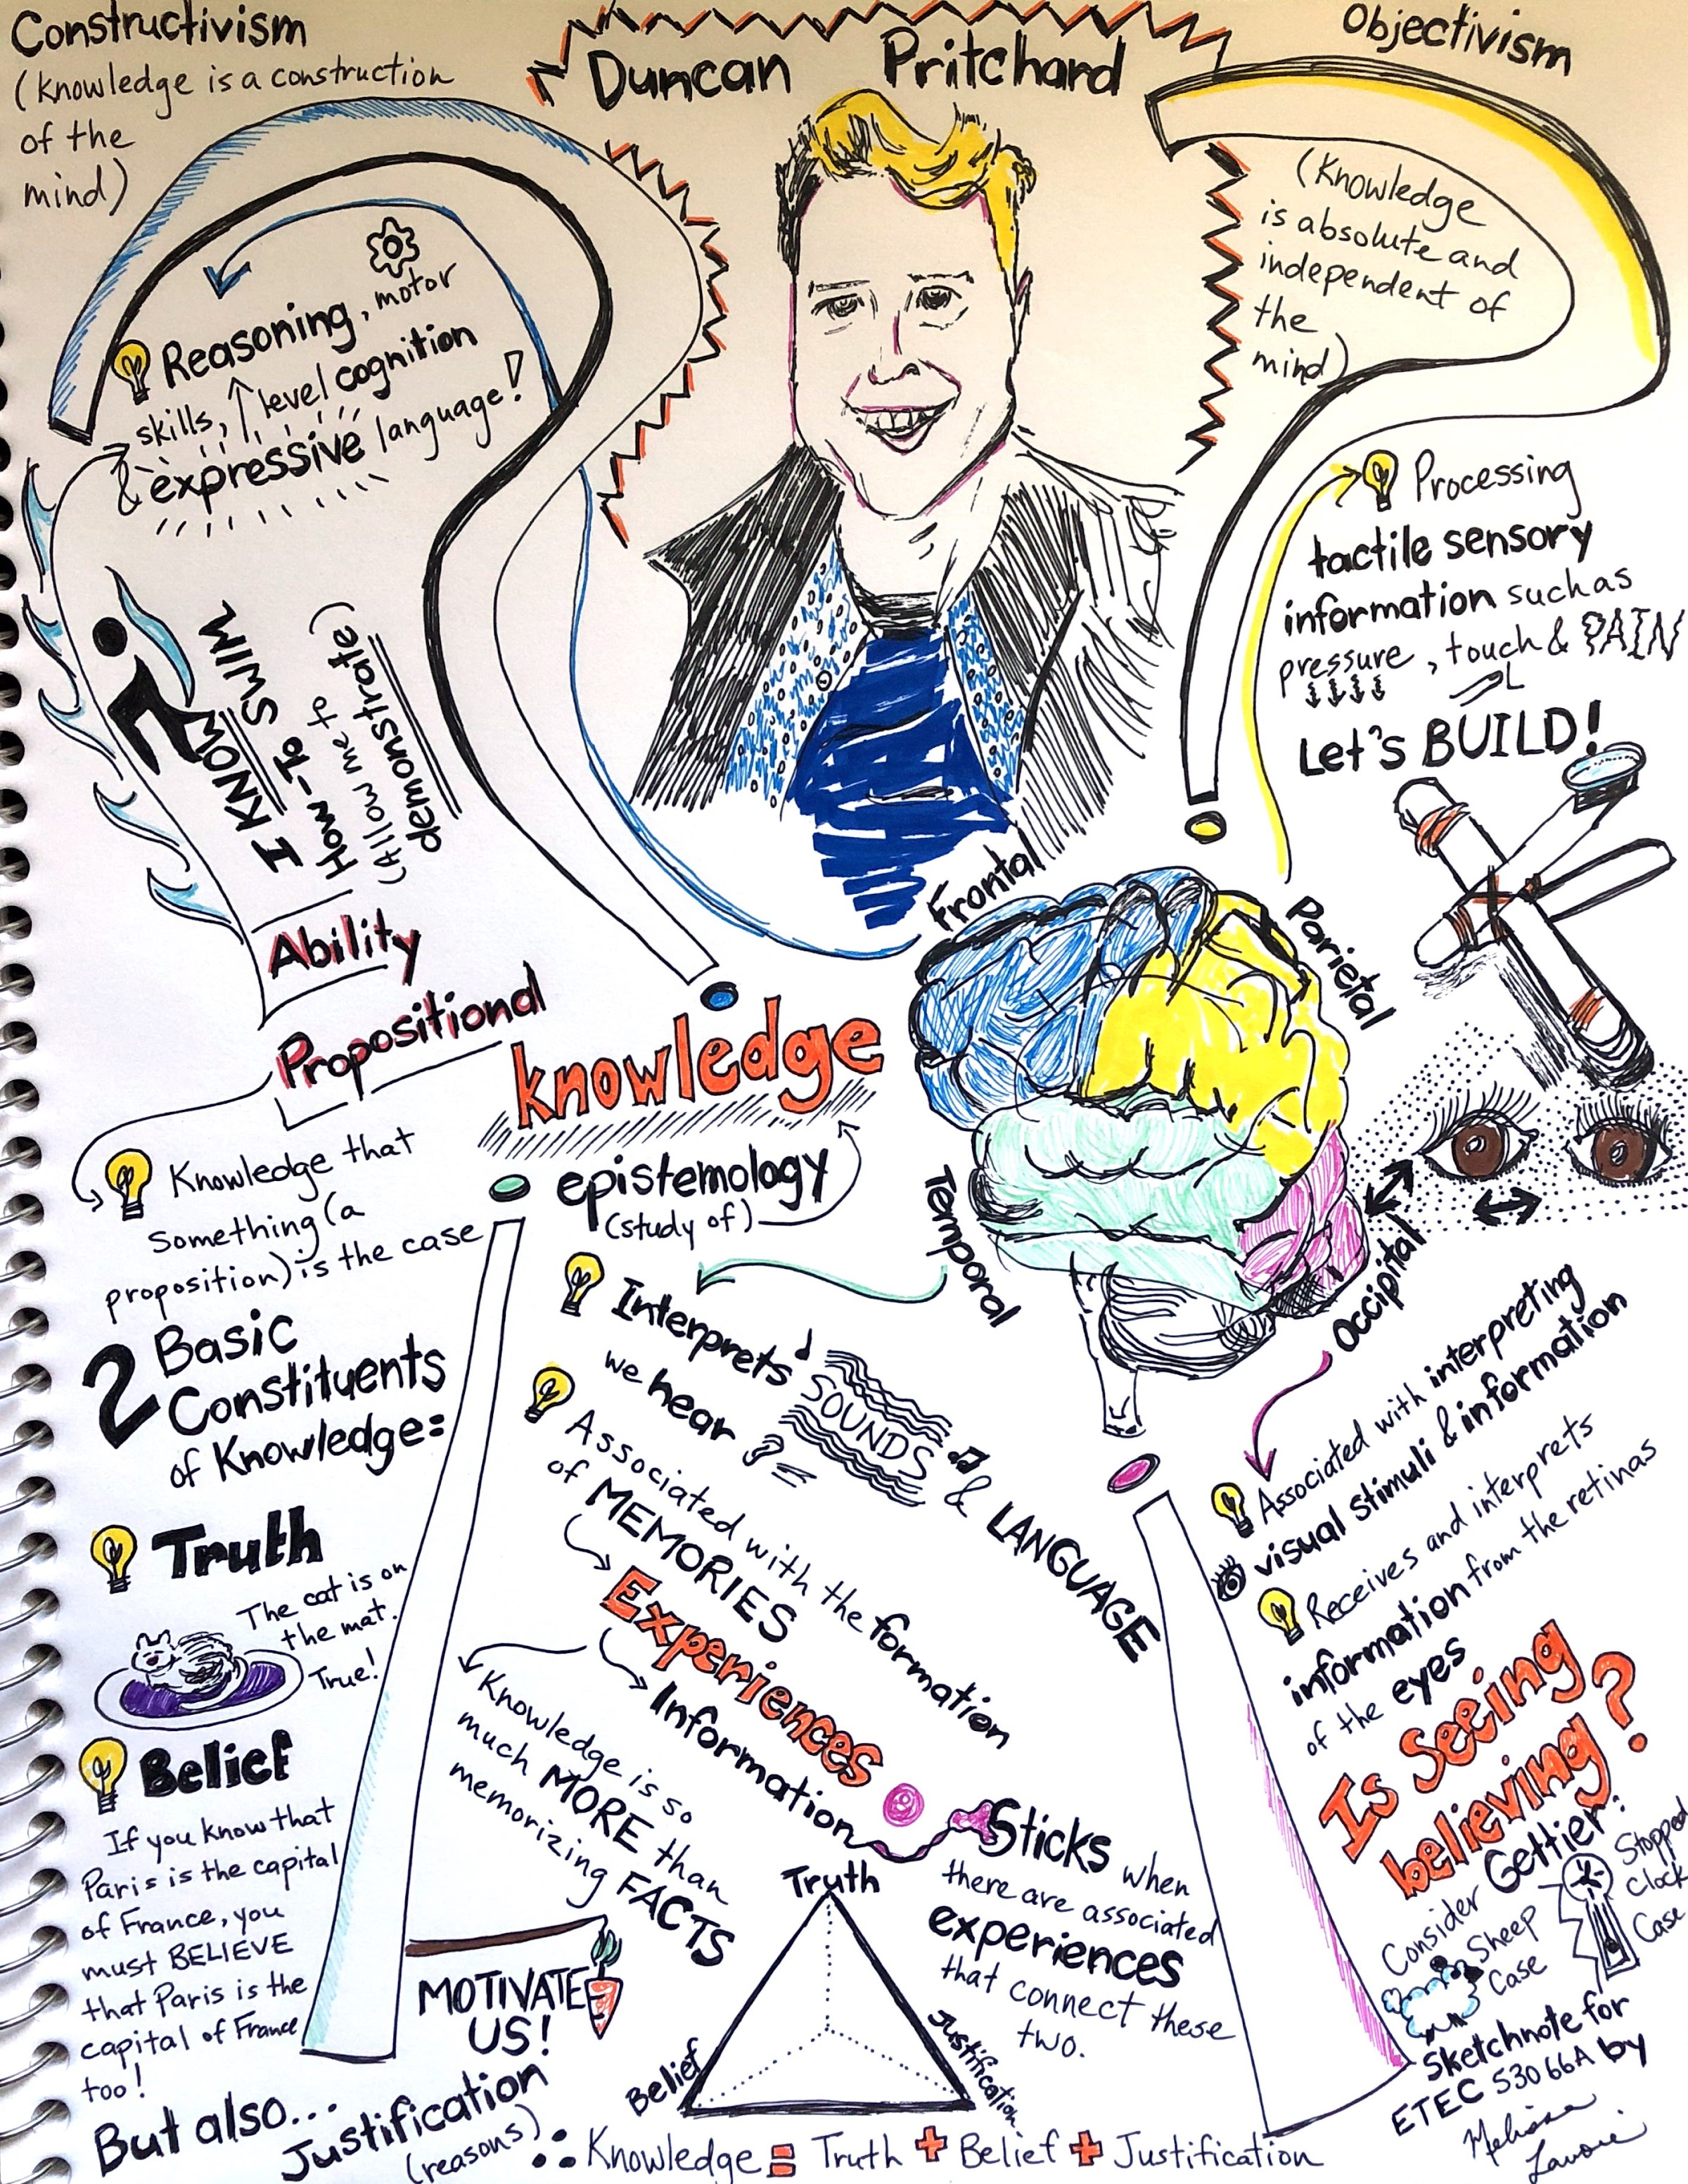 Constructivism
(knowledge is a construction
of the
mind)
Duncan Pritchard
Objectivism
(Knowledge
is absolute and
independent of
the
mind)
Reasoning, motor
skills, ↑ level cognition
& expressive language!
I KNOW
How-To SWIM
(Allow me to
demonstrate)
Ability
Propositional
knowledge
epistemology
(study of)
Processing
tactile sensory
information such as
pressure, touch & PAIN
Let's BUILD!
Frontal
Parietal
Temporal
occipital
Knowledge that
something (a
proposition) is the case
2 Basic
Constituents
of Knowledge=
Truth
The cat is on
the mat.
True!
Belief
If you know that
Paris is the capital
of France, you
must BELIEVE
that Paris is the
capital of France
too!
But also...
Justification
(reasons)
Interprets SOUNDS
we hear & LANGUAGE
Associated with the formation
of MEMORIES
Experiences
Information
Knowledge is so
much MORE than
memorizing FACTS
MOTIVATE
US!
Sticks when
there are associated
experiences
that connect these
two.
Truth
Belief
Justification
∴ Knowledge = Truth + Belief + Justification
Associated with interpreting
visual stimuli & information
Receives and interprets
information from the retinas
of the eyes
Is Seeing
believing?
Consider Gettier:
Sheep
Case
Stopped
Clock
Case
Sketchnote for
ETEC 530 66A by
Melissa
Lavoie